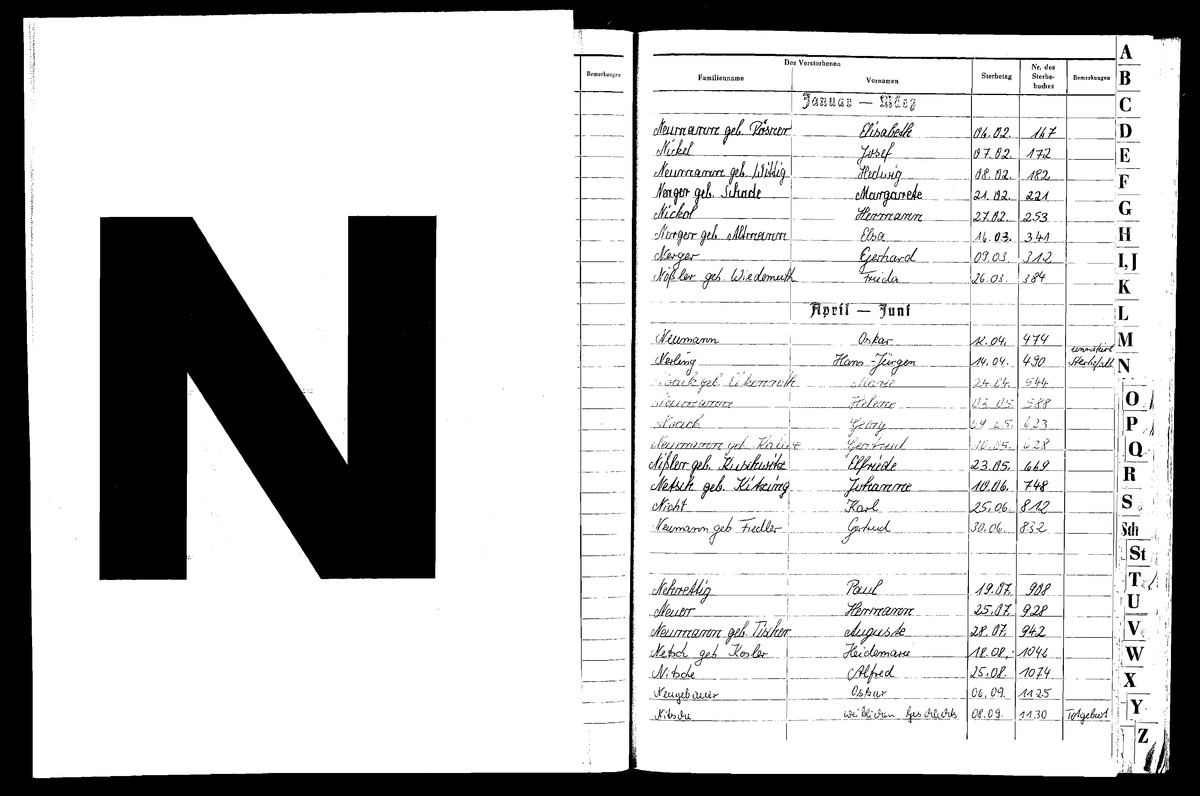 N
Bemerkungen
Des Verstorbenen
Familienname Vornamen Sterbetag Nr. des Sterbe-buches Bemerkungen
Januar — März
Neumann geb. Rösner Elisabeth 06.02. 167
Nickel Josef 07.02. 172
Neumann geb. Wittig Hedwig 08.02. 182
Nerger geb. Schade Margarete 21.02. 221
Nickol Hermann 27.02. 253
Nerger geb. Altmann Elsa 16.03. 341
Nerger Gerhard 09.03. 312
Nößler geb. Wiedemuth Frieda 26.03. 384
April — Juni
Neumann Oskar 12.04. 474
Nerling Hans-Jürgen 14.04. 490 Sterbefall
Noack geb. Marie 24.04. 544
Neumann Helene 03.05. 588
Noack Georg 623
Neumann geb. Gertrud 10.05. 628
Nißler geb. Kuschwitz Elfriede 23.05. 669
Netsch geb. Kitzing Johanne 10.06. 748
Nicht Karl 25.06. 812
Neumann geb Fiedler Gertrud 30.06. 832
Nehrettig Paul 19.07. 908
Neuer Hermann 25.07. 928
Neumann geb. Tischer Auguste 28.07. 942
Netsch geb Kosler Heidemarie 18.08. 1046
Nitsche Alfred 25.08. 1074
Neugebauer Oskar 06.09. 1125
Nitsche weiblichen Geschlechts 08.09. 1130 Totgeburt
A
B
C
D
E
F
G
H
I, J
K
L
M
N
O
P
Q
R
S
Sch
St
T
U
V
W
X
Y
Z